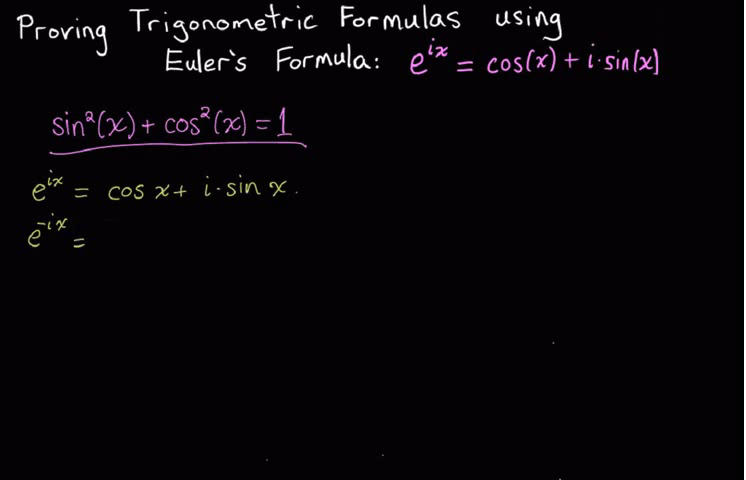 Proving Trigonometric Formulas using
Euler's Formula: e^{ix} = cos(x) + i·sin(x)
sin²(x) + cos²(x) = 1
e^{ix} = cos x + i·sin x.
e^{-ix} =